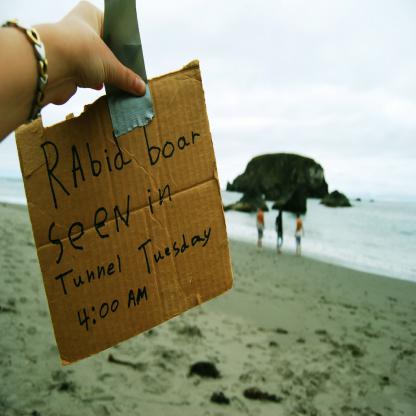 RAbid boar
SEEN in
Tunnel Tuesday
4:00 AM